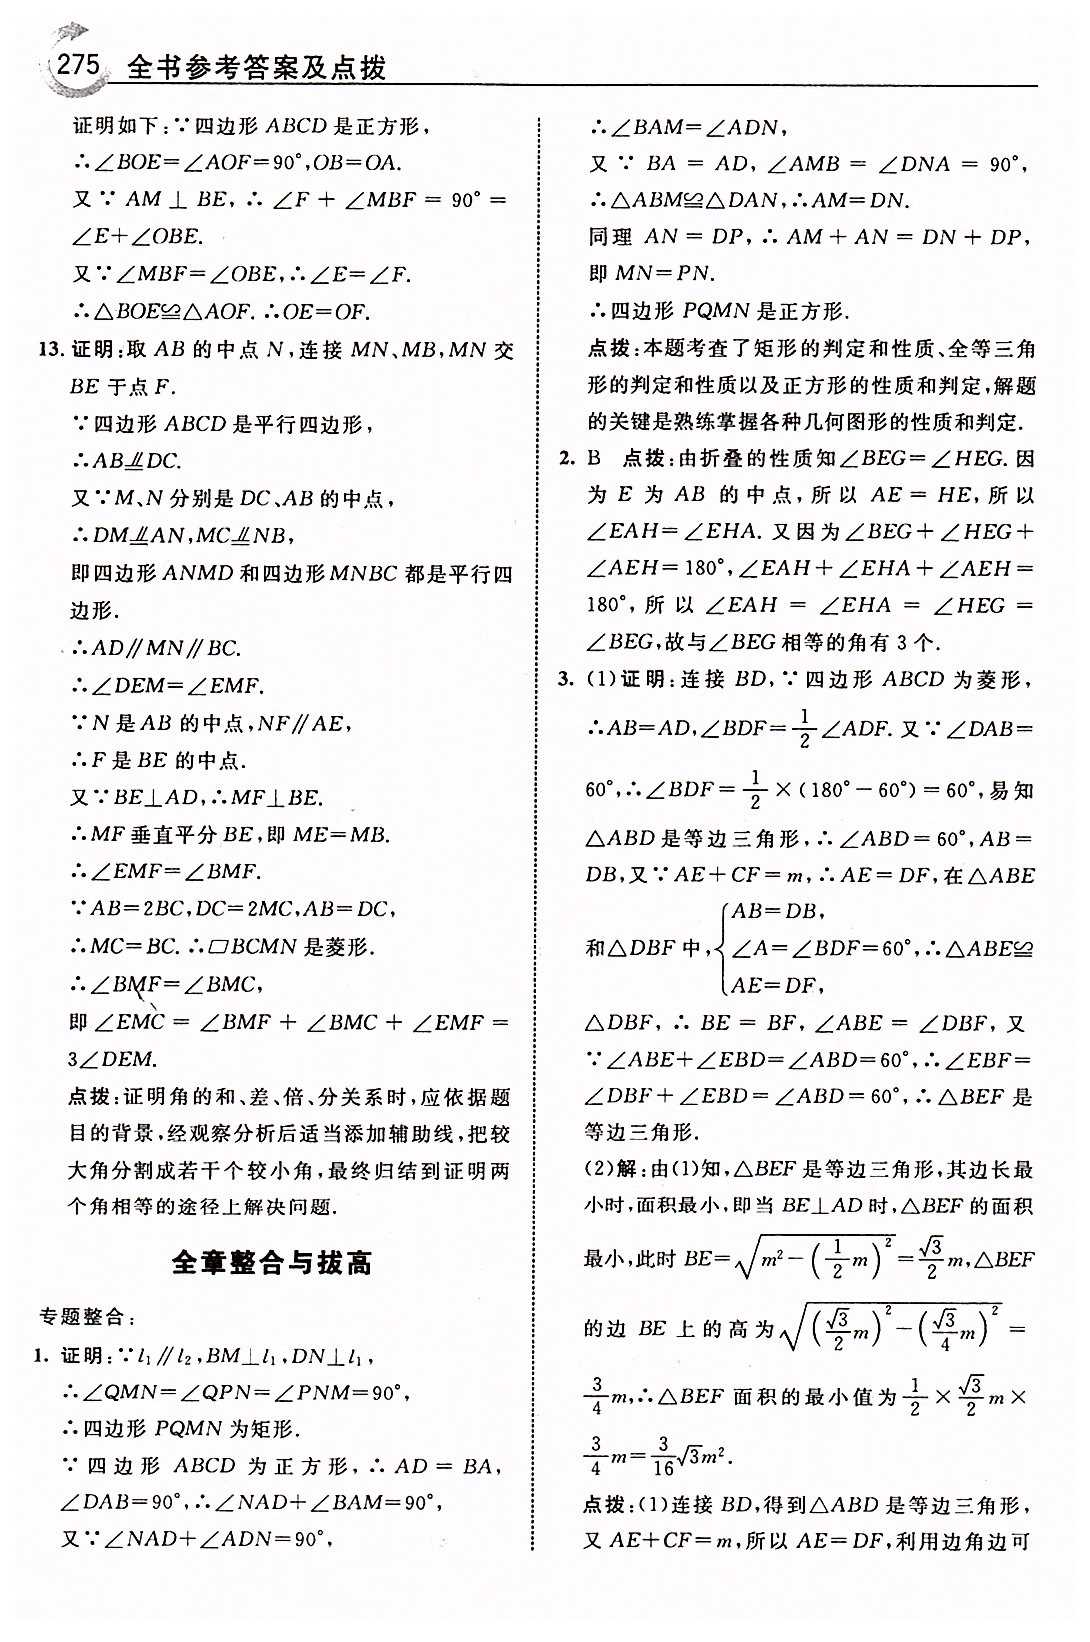 275 全书参考答案及点拨
证明如下:∵四边形 ABCD 是正方形,
∴∠BOE=∠AOF=90°,OB=OA.
又∵ AM⊥BE,∴∠F+∠MBF=90°=
∠E+∠OBE.
又∵∠MBF=∠OBE,∴∠E=∠F.
∴△BOE≌△AOF.∴OE=OF.
13. 证明:取 AB 的中点 N,连接 MN、MB,MN 交
BE 于点 F.
∵四边形 ABCD 是平行四边形,
∴AB⫽DC.
又∵M、N 分别是 DC、AB 的中点,
∴DM⫽AN,MC⫽NB,
即四边形 ANMD 和四边形 MNBC 都是平行四
边形.
∴AD∥MN∥BC.
∴∠DEM=∠EMF.
∵N 是 AB 的中点,NF∥AE,
∴F 是 BE 的中点.
又∵BE⊥AD,∴MF⊥BE.
∴MF 垂直平分 BE,即 ME=MB.
∴∠EMF=∠BMF.
∵AB=2BC,DC=2MC,AB=DC,
∴MC=BC.∴▱BCMN 是菱形.
∴∠BMF=∠BMC,
即∠EMC=∠BMF+∠BMC+∠EMF=
3∠DEM.
点拨:证明角的和、差、倍、分关系时,应依据题
目的背景,经观察分析后适当添加辅助线,把较
大角分割成若干个较小角,最终归结到证明两
个角相等的途径上解决问题.
全章整合与拔高
专题整合:
1. 证明:∵l₁∥l₂,BM⊥l₁,DN⊥l₁,
∴∠QMN=∠QPN=∠PNM=90°,
∴四边形 PQMN 为矩形.
∵四边形 ABCD 为正方形,∴AD=BA,
∠DAB=90°,∴∠NAD+∠BAM=90°,
又∵∠NAD+∠ADN=90°,
∴∠BAM=∠ADN,
又∵ BA=AD,∠AMB=∠DNA=90°,
∴△ABM≌△DAN,∴AM=DN.
同理 AN=DP,∴AM+AN=DN+DP,
即 MN=PN.
∴四边形 PQMN 是正方形.
点拨:本题考查了矩形的判定和性质、全等三角
形的判定和性质以及正方形的性质和判定,解题
的关键是熟练掌握各种几何图形的性质和判定.
2. B 点拨:由折叠的性质知∠BEG=∠HEG.因
为 E 为 AB 的中点,所以 AE=HE,所以
∠EAH=∠EHA.又因为∠BEG+∠HEG+
∠AEH=180°,∠EAH+∠EHA+∠AEH=
180°,所以∠EAH=∠EHA=∠HEG=
∠BEG,故与∠BEG 相等的角有 3 个.
3. (1)证明:连接 BD,∵四边形 ABCD 为菱形,
∴AB=AD,∠BDF=1/2∠ADF.又∵∠DAB=
60°,∴∠BDF=1/2×(180°-60°)=60°,易知
△ABD 是等边三角形,∴∠ABD=60°,AB=
DB,又∵AE+CF=m,∴AE=DF,在△ABE
和△DBF 中,{AB=DB,
∠A=∠BDF=60°,∴△ABE≌
AE=DF,
△DBF,∴BE=BF,∠ABE=∠DBF,又
∵∠ABE+∠EBD=∠ABD=60°,∴∠EBF=
∠DBF+∠EBD=∠ABD=60°,∴△BEF 是
等边三角形.
(2)解:由(1)知,△BEF 是等边三角形,其边长最
小时,面积最小,即当 BE⊥AD 时,△BEF 的面积
最小,此时 BE=√(m²-(1/2m)²)=√3/2m,△BEF
的边 BE 上的高为√((√3/2m)²-(√3/4m)²)=
3/4m,∴△BEF 面积的最小值为1/2×√3/2m×
3/4m=3/16√3m².
点拨:(1)连接 BD,得到△ABD 是等边三角形,
又 AE+CF=m,所以 AE=DF,利用边角边可